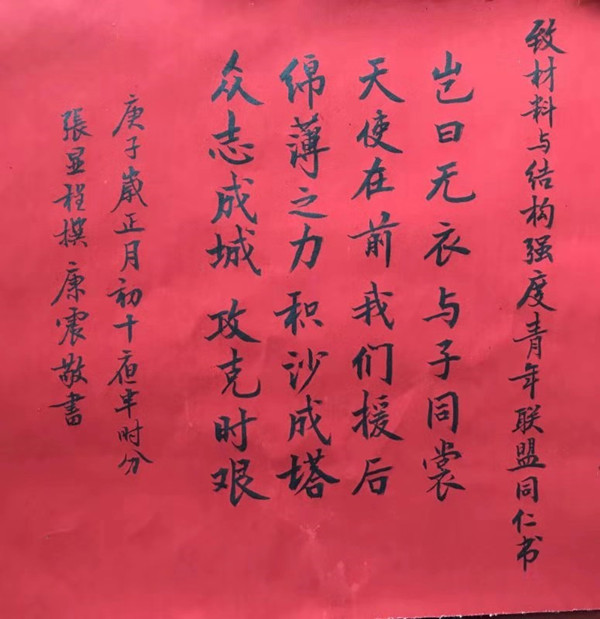 致材料与结构强度青年联盟同仁书
岂曰无衣与子同裳
天使在前我们援后
绵薄之力积沙成塔
众志成城攻克时艰
庚子岁正月初十夜半时分
張显程撰康震敬書